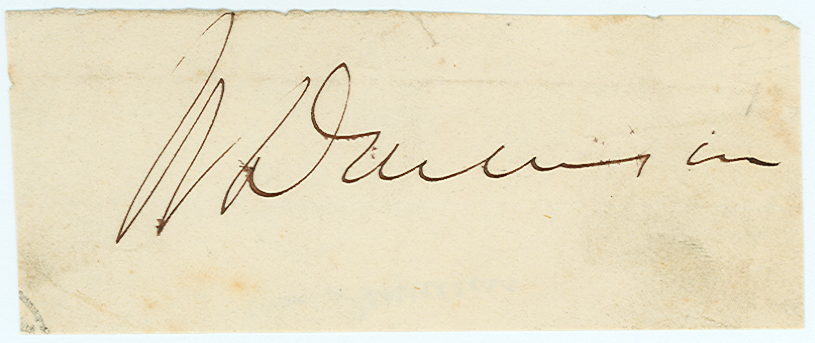 W Dennison